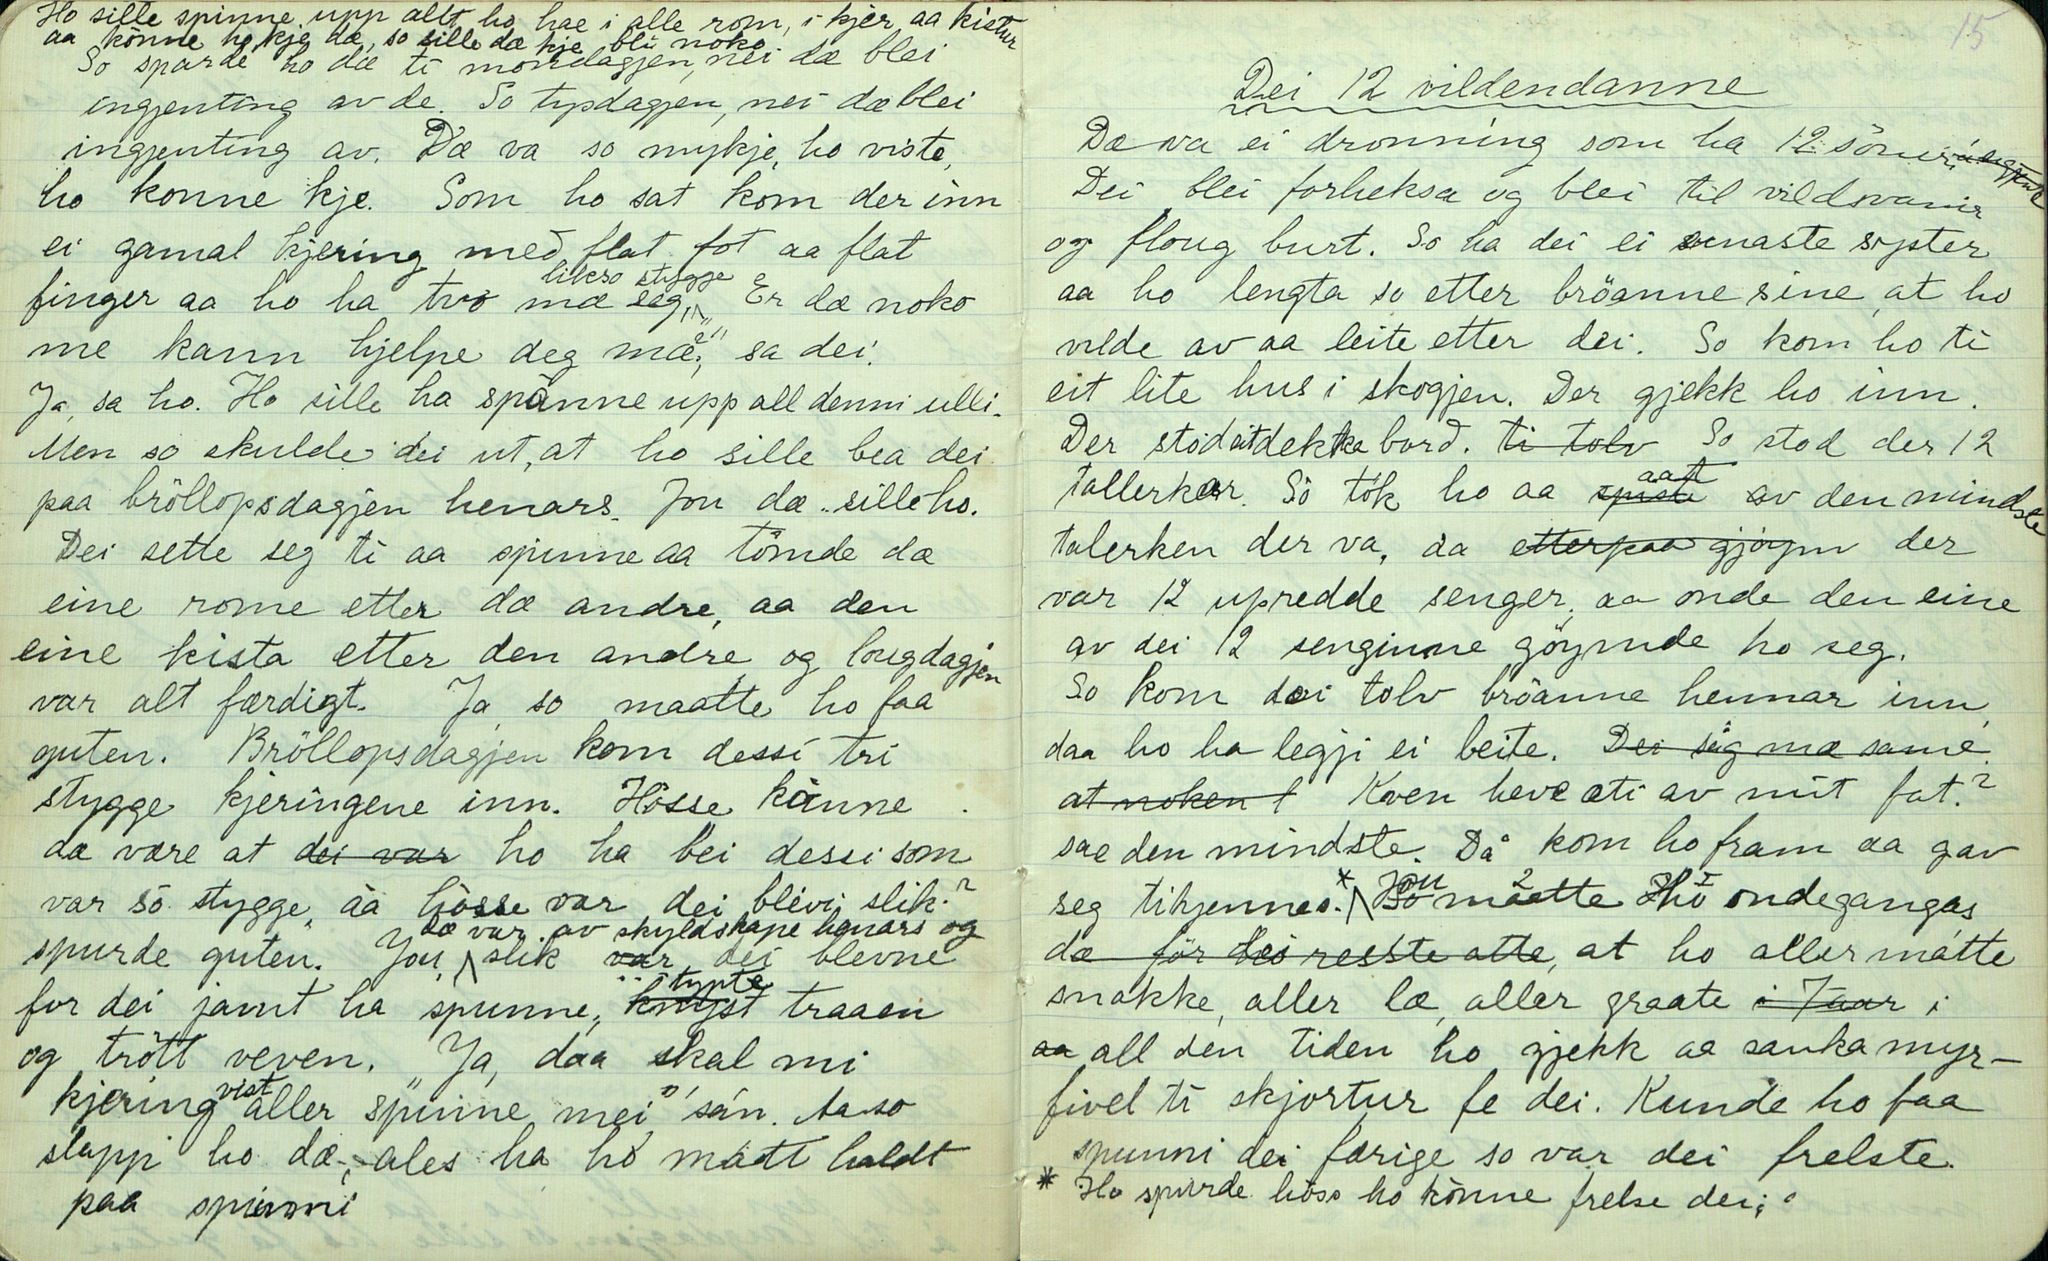 Ho sille spinne upp allt ho hae i alle rom, i kjer aa kistur
aa könne ho kje dæ, so sille dæ kje bli noko.
So sparde ho dæ ti mondagjen, nei dæ blei
ingjenting av de. So tysdagjen, nei dæ blei
ingjenting av. Dæ va so mykje, ho viste,
ho konne kje. Som ho sat kom der inn
ei gamal kjering med flat fot aa flat
likso stygge
finger aa ho ha tvo mæ seg. "Er dæ noko
me kann hjelpe deg mæ?" sa dei.
Ja, sa ho. Ho sille ha spånne upp all denni ulli.
Men so skulde dei ut, at ho sille bea dei
paa bröllopsdagjen henars. Jou dæ sille ho.
Dei sette seg ti aa spinne aa tömde dæ
eine rome etter dæ andre, aa den
eine kista etter den andre og lougdagjen
var alt færdigt. Ja so maatte ho faa
guten. Bröllopsdagjen kom dessi tri
stygge kjeringene inn. Hösse kånne
dæ være at dei var ho ha bei dessi som
var so stygge, åa hösse var dei blivi slik?
dæ var av skyldskape henars og
spurde guten. Jou, slik var dei blevne
typte
for dei jamt ha spunne, knyst traaen
og trött veven. "Ja, daa skal mi
vist
kjering aller spinne mei", sån. Aa so
slappi ho dæ, ales ha ho mått haldt
paa spinni

15
Dei 12 vildendanne
Dæ va ei dronning som ha 12 söner,
Dei blei forheksa og blei til vildsvanir
og floug burt. So ha dei ei einaste syster
aa ho lengta so etter bröanne sine, at ho
vilde av aa leite etter dei. So kom ho ti
eit lite hus i skogjen. Der gjekk ho inn.
Der stod eit dekka bord. ti tolv So stod der 12
aat
tallerkar. So tok ho aa spiste av den mindste
talerken der va, aa etterpaa gjöym der
var 12 upredde senger, aa onde den eine
av dei 12 senginne göymde ho seg.
So kom dei tolv bröanne hennar inn,
daa ho ha legji ei beite. Dei såg mæ same
at noken Kven heve æti av mit fat?
sae den mindste. Då kom ho fram aa gav
Jou 2 1
seg tikjennes.* So måtte Ho ondegangas
dæ för dei resste atte, at ho aller måtte
snakke, aller læ, aller graate i 7 aar i
aa all den tiden ho gjekk aa sanka myr-
fivel ti skjortur fe dei. Kunde ho faa
spunni dei færige so var dei frelste.
* Ho spurde höss ho könne frelse dei;